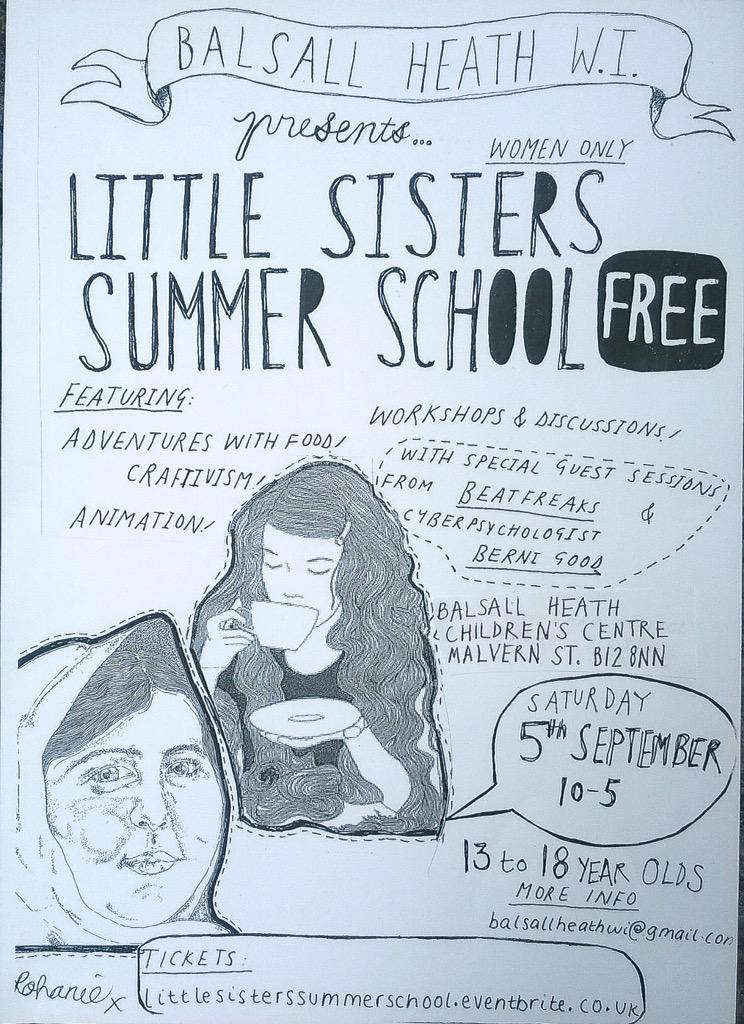 BALSALL HEATH W.I.
presents...
WOMEN ONLY
LITTLE SISTERS
SUMMER SCHOOL FREE
FEATURING:
ADVENTURES WITH FOOD/
CRAFTIVISM/
ANIMATION/
WORKSHOPS & DISCUSSIONS/
WITH SPECIAL GUEST SESSIONS
FROM BEATFREAKS &
CYBERPSYCHOLOGIST
BERNI GOOD
BALSALL HEATH
CHILDREN'S CENTRE
MALVERN ST. B12 8NN
SATURDAY
5th SEPTEMBER
10-5
13 to 18 YEAR OLDS
MORE INFO
balsallheathwi@gmail.com
TICKETS:
littlesisterssummerschool.eventbrite.co.uk
Rohanie x